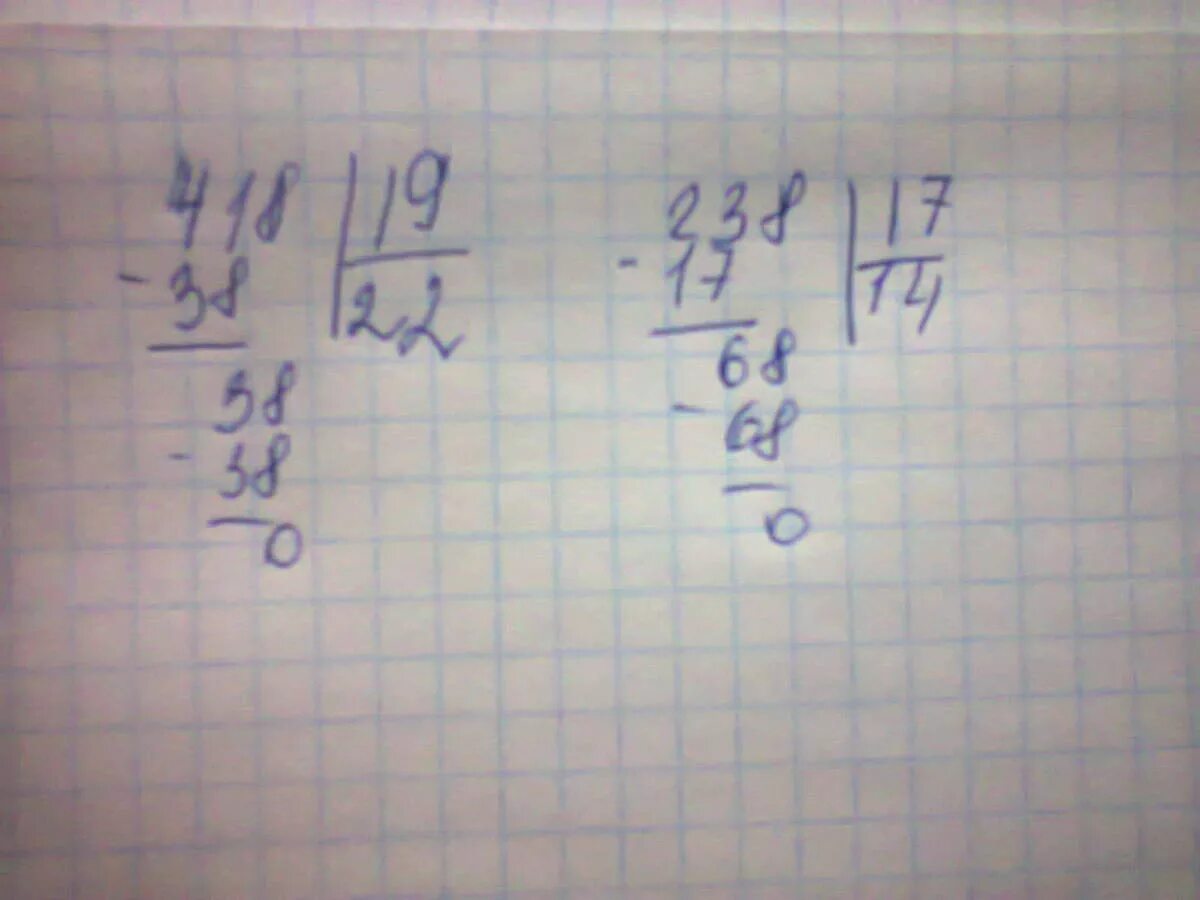 418 19
- 38 22
38
- 38
0
238 17
- 17 14
68
- 68
0